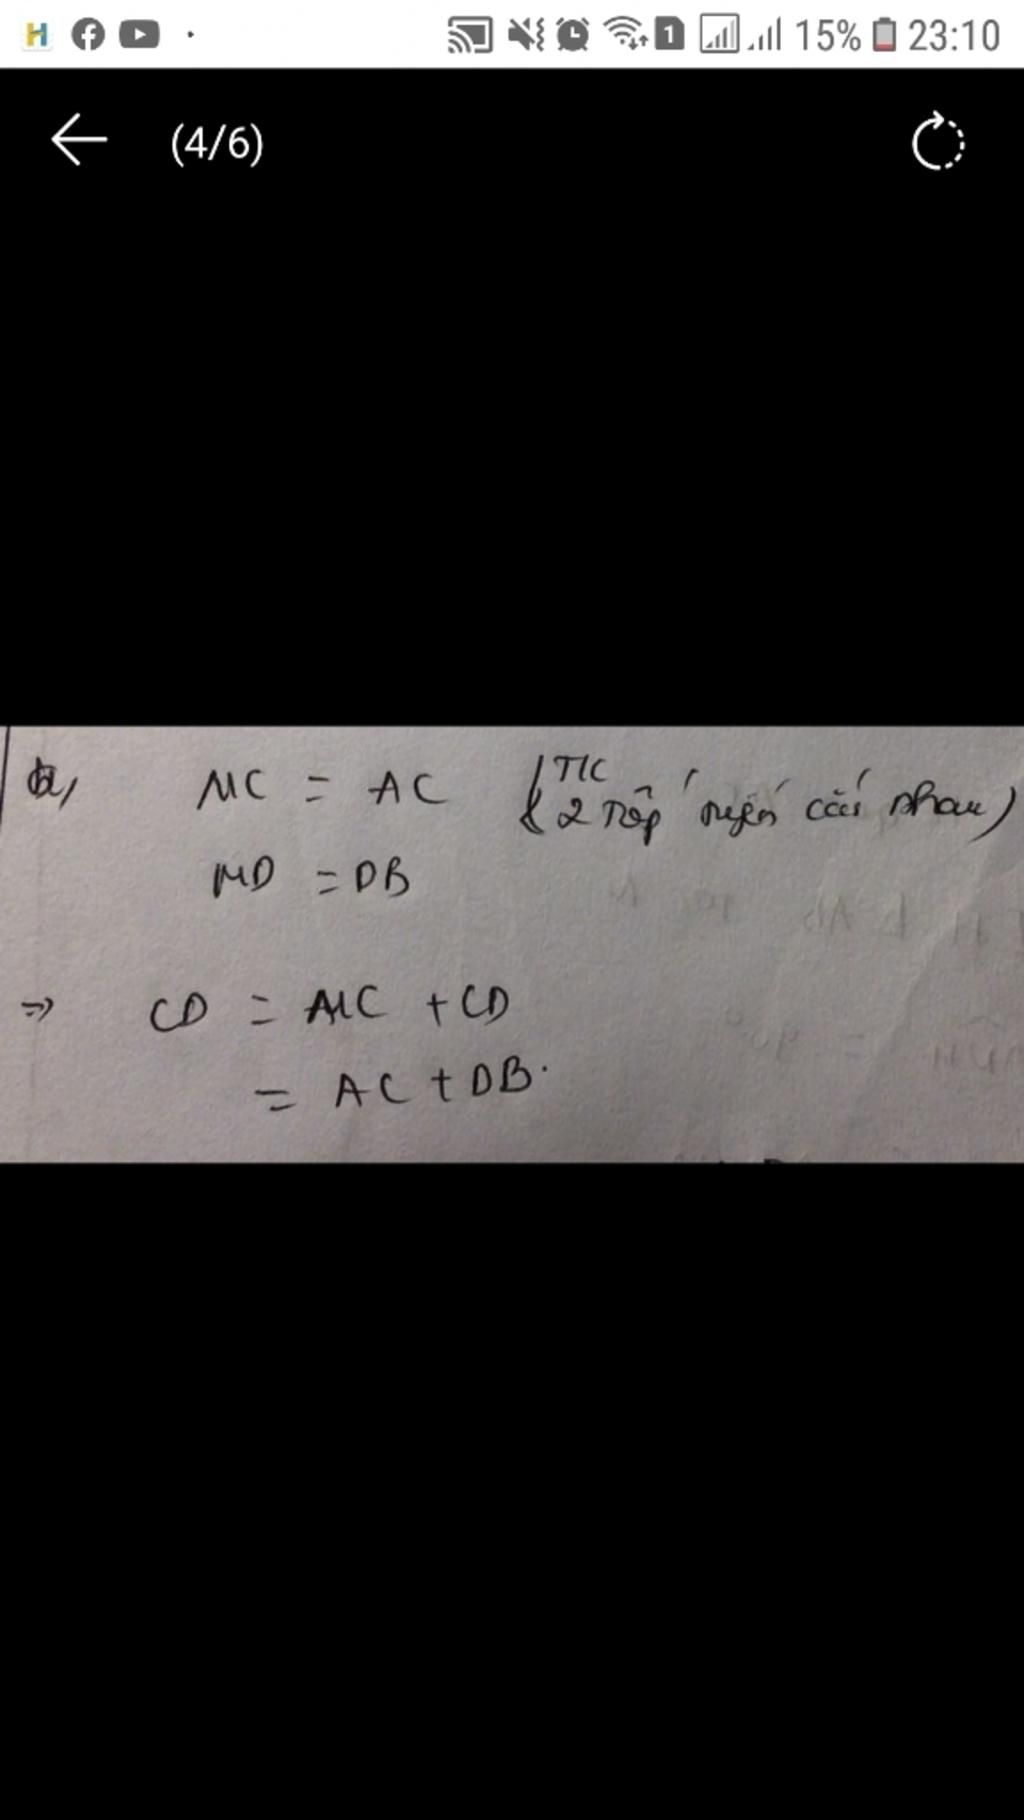 15% 23:10
(4/6)
a, MC = AC (T/c 2 tiếp tuyến cắt nhau)
MD = DB
=> CD = MC + CD
= AC + DB.